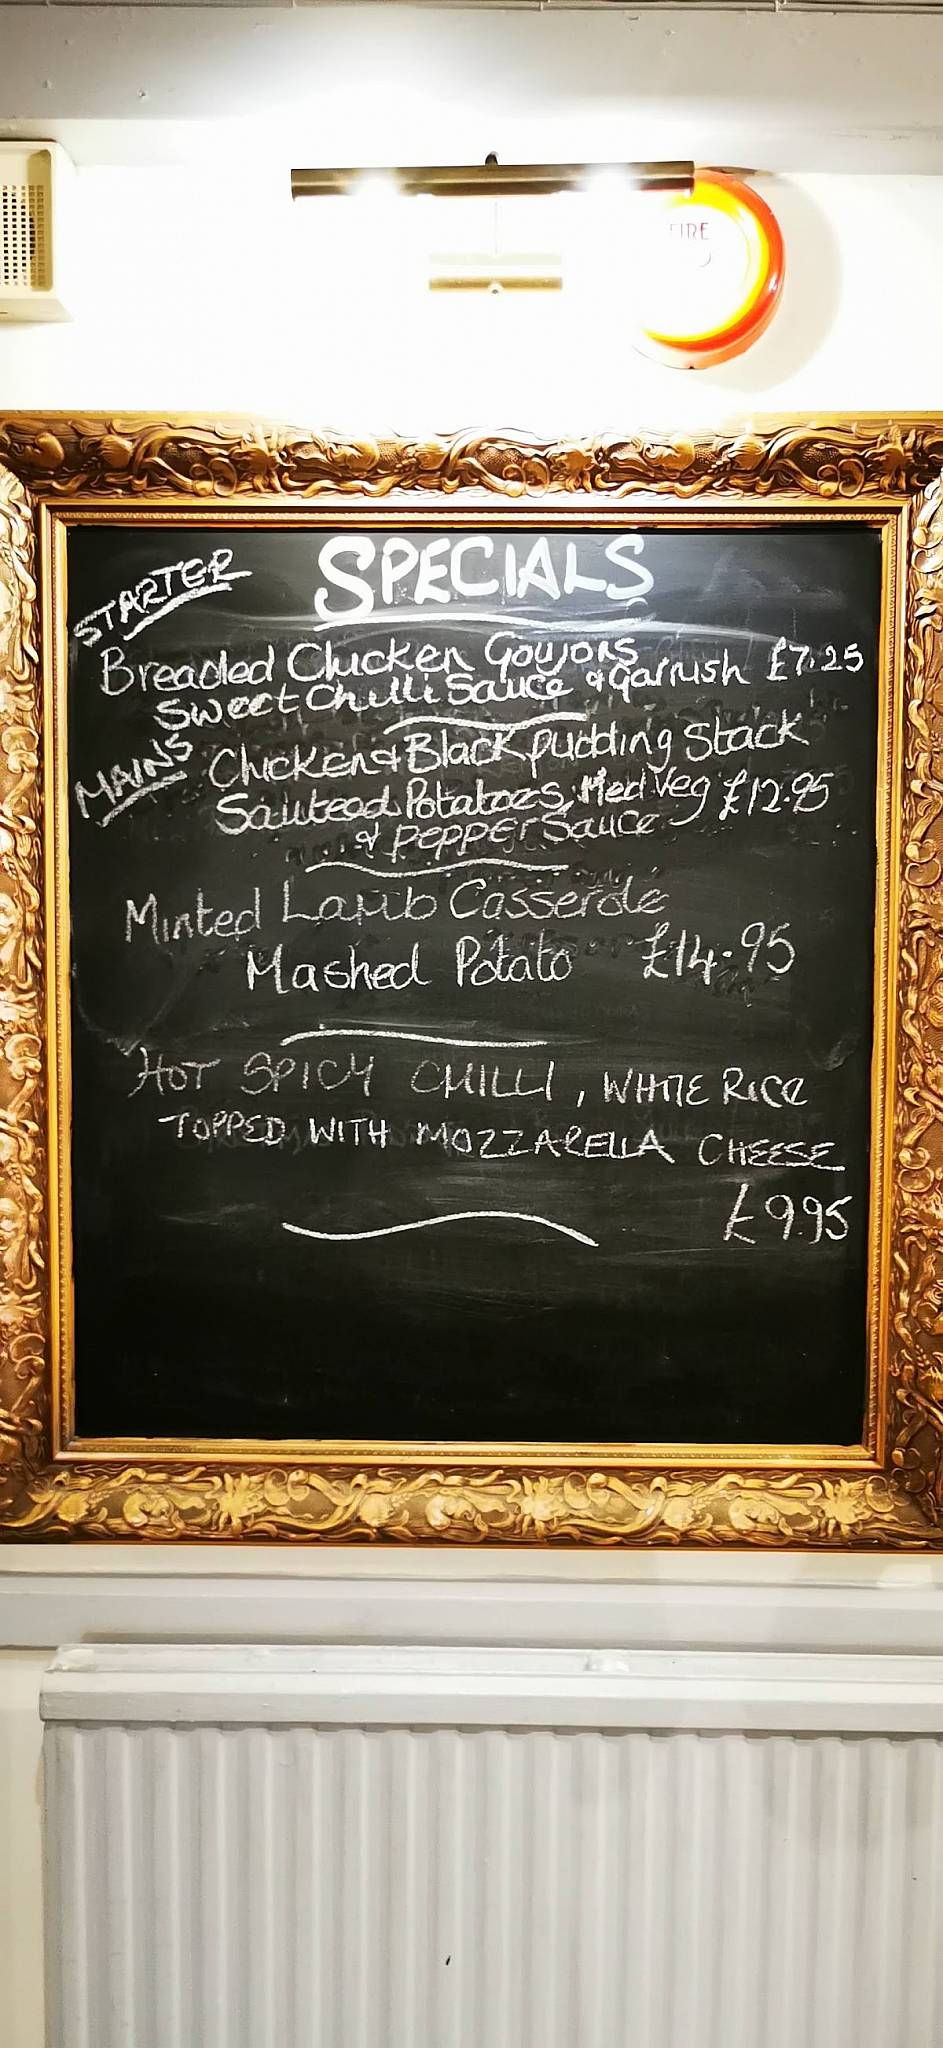 FIRE
SPECIALS
STARTER
Breaded Chicken Goujons
Sweet Chilli Sauce & Garnish £7.25
MAINS
Chicken & Black pudding Stack
Sauteed Potatoes, Med Veg £12.95
& PEPPER Sauce
Minted Lamb Casserole
Mashed Potato £14.95
HOT SPICY CHILLI, WHITE RICE
TOPPED WITH MOZZARELLA CHEESE
£9.95